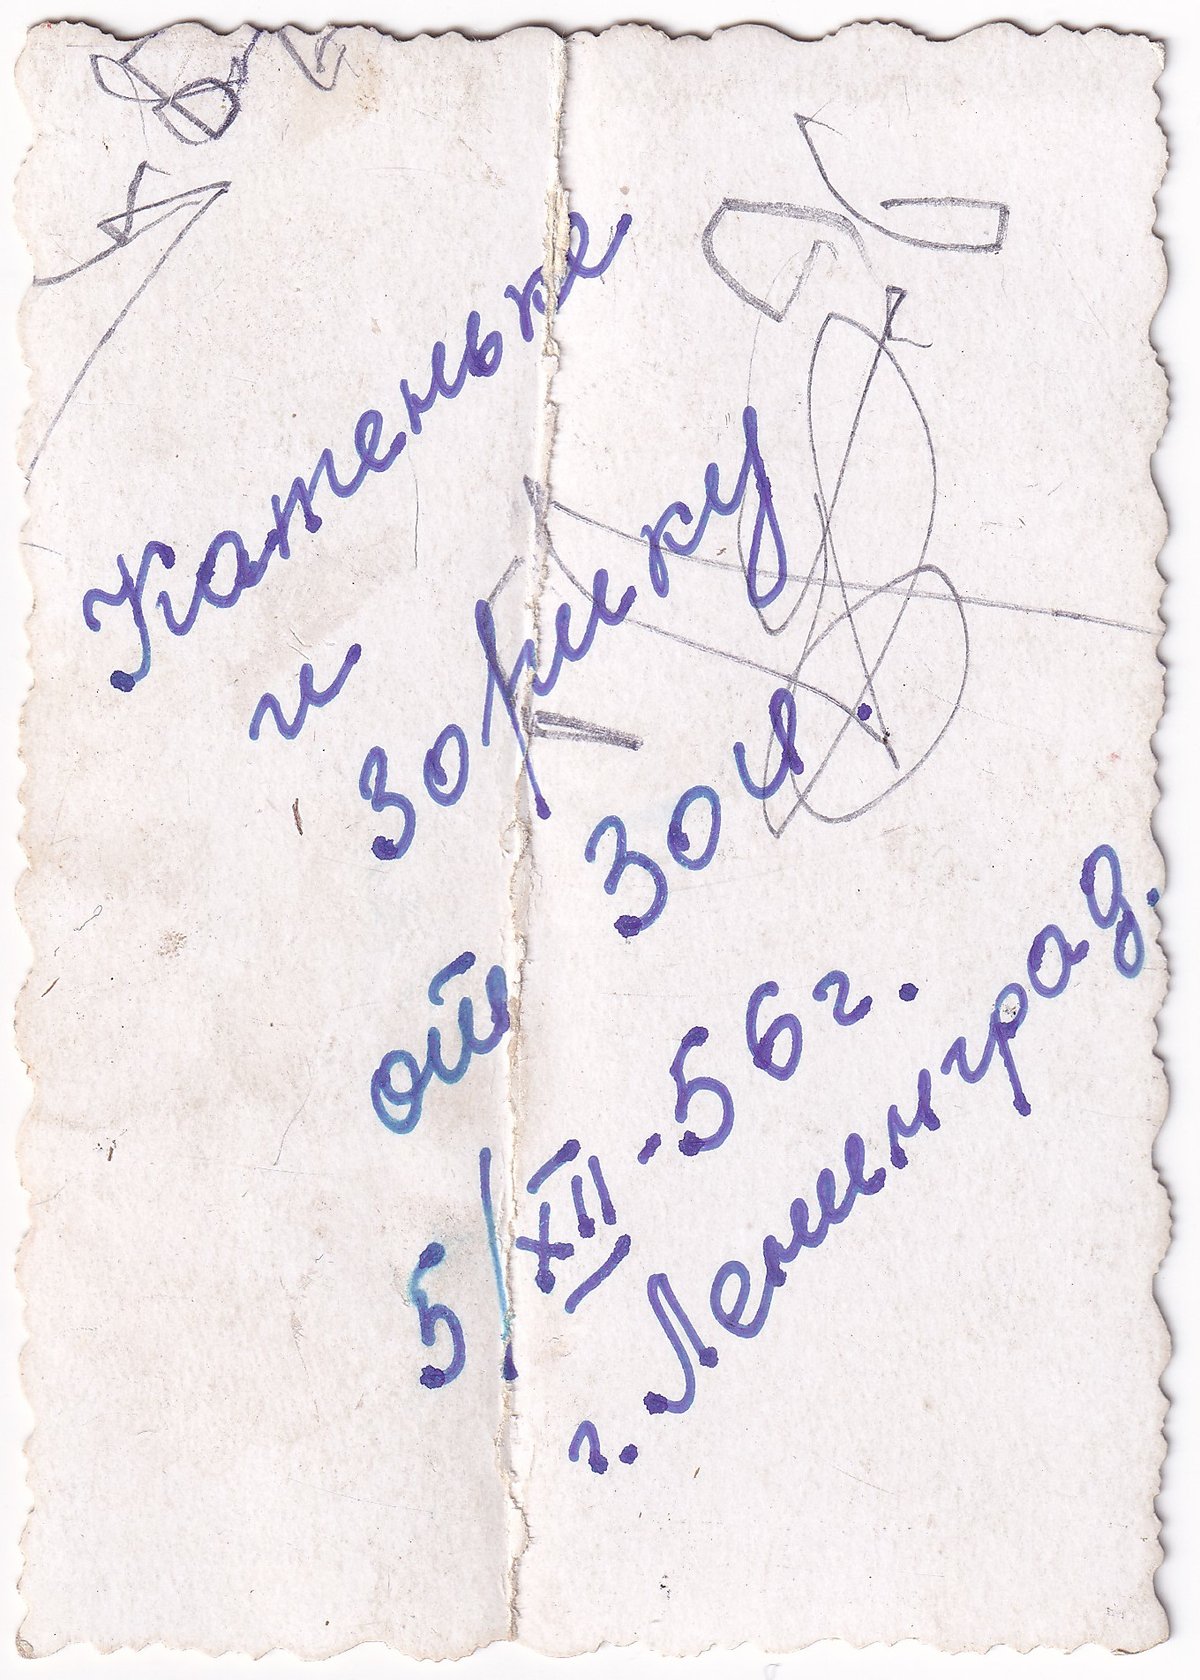 Катеньке
и
Зорику
от Зои.
5/XII-56г.
г. Ленинград.